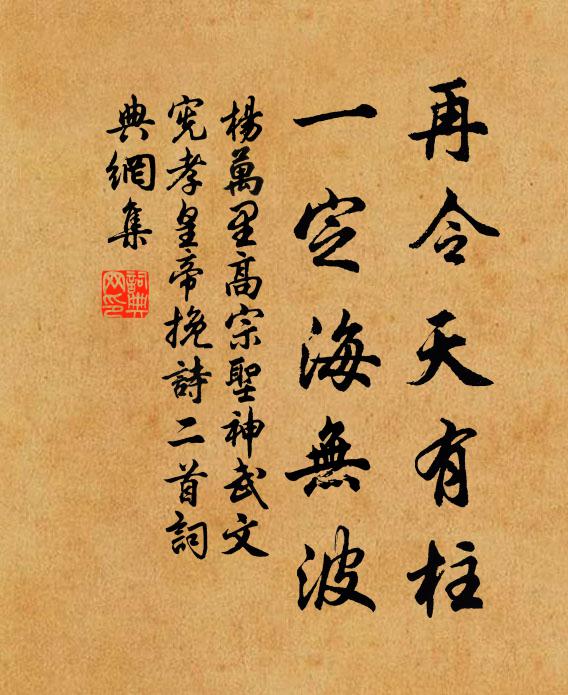 再令天有柱
一定海無波
楊萬里高宗聖神武文
憲孝皇帝挽詩二首詞
典網集
詞典
网印